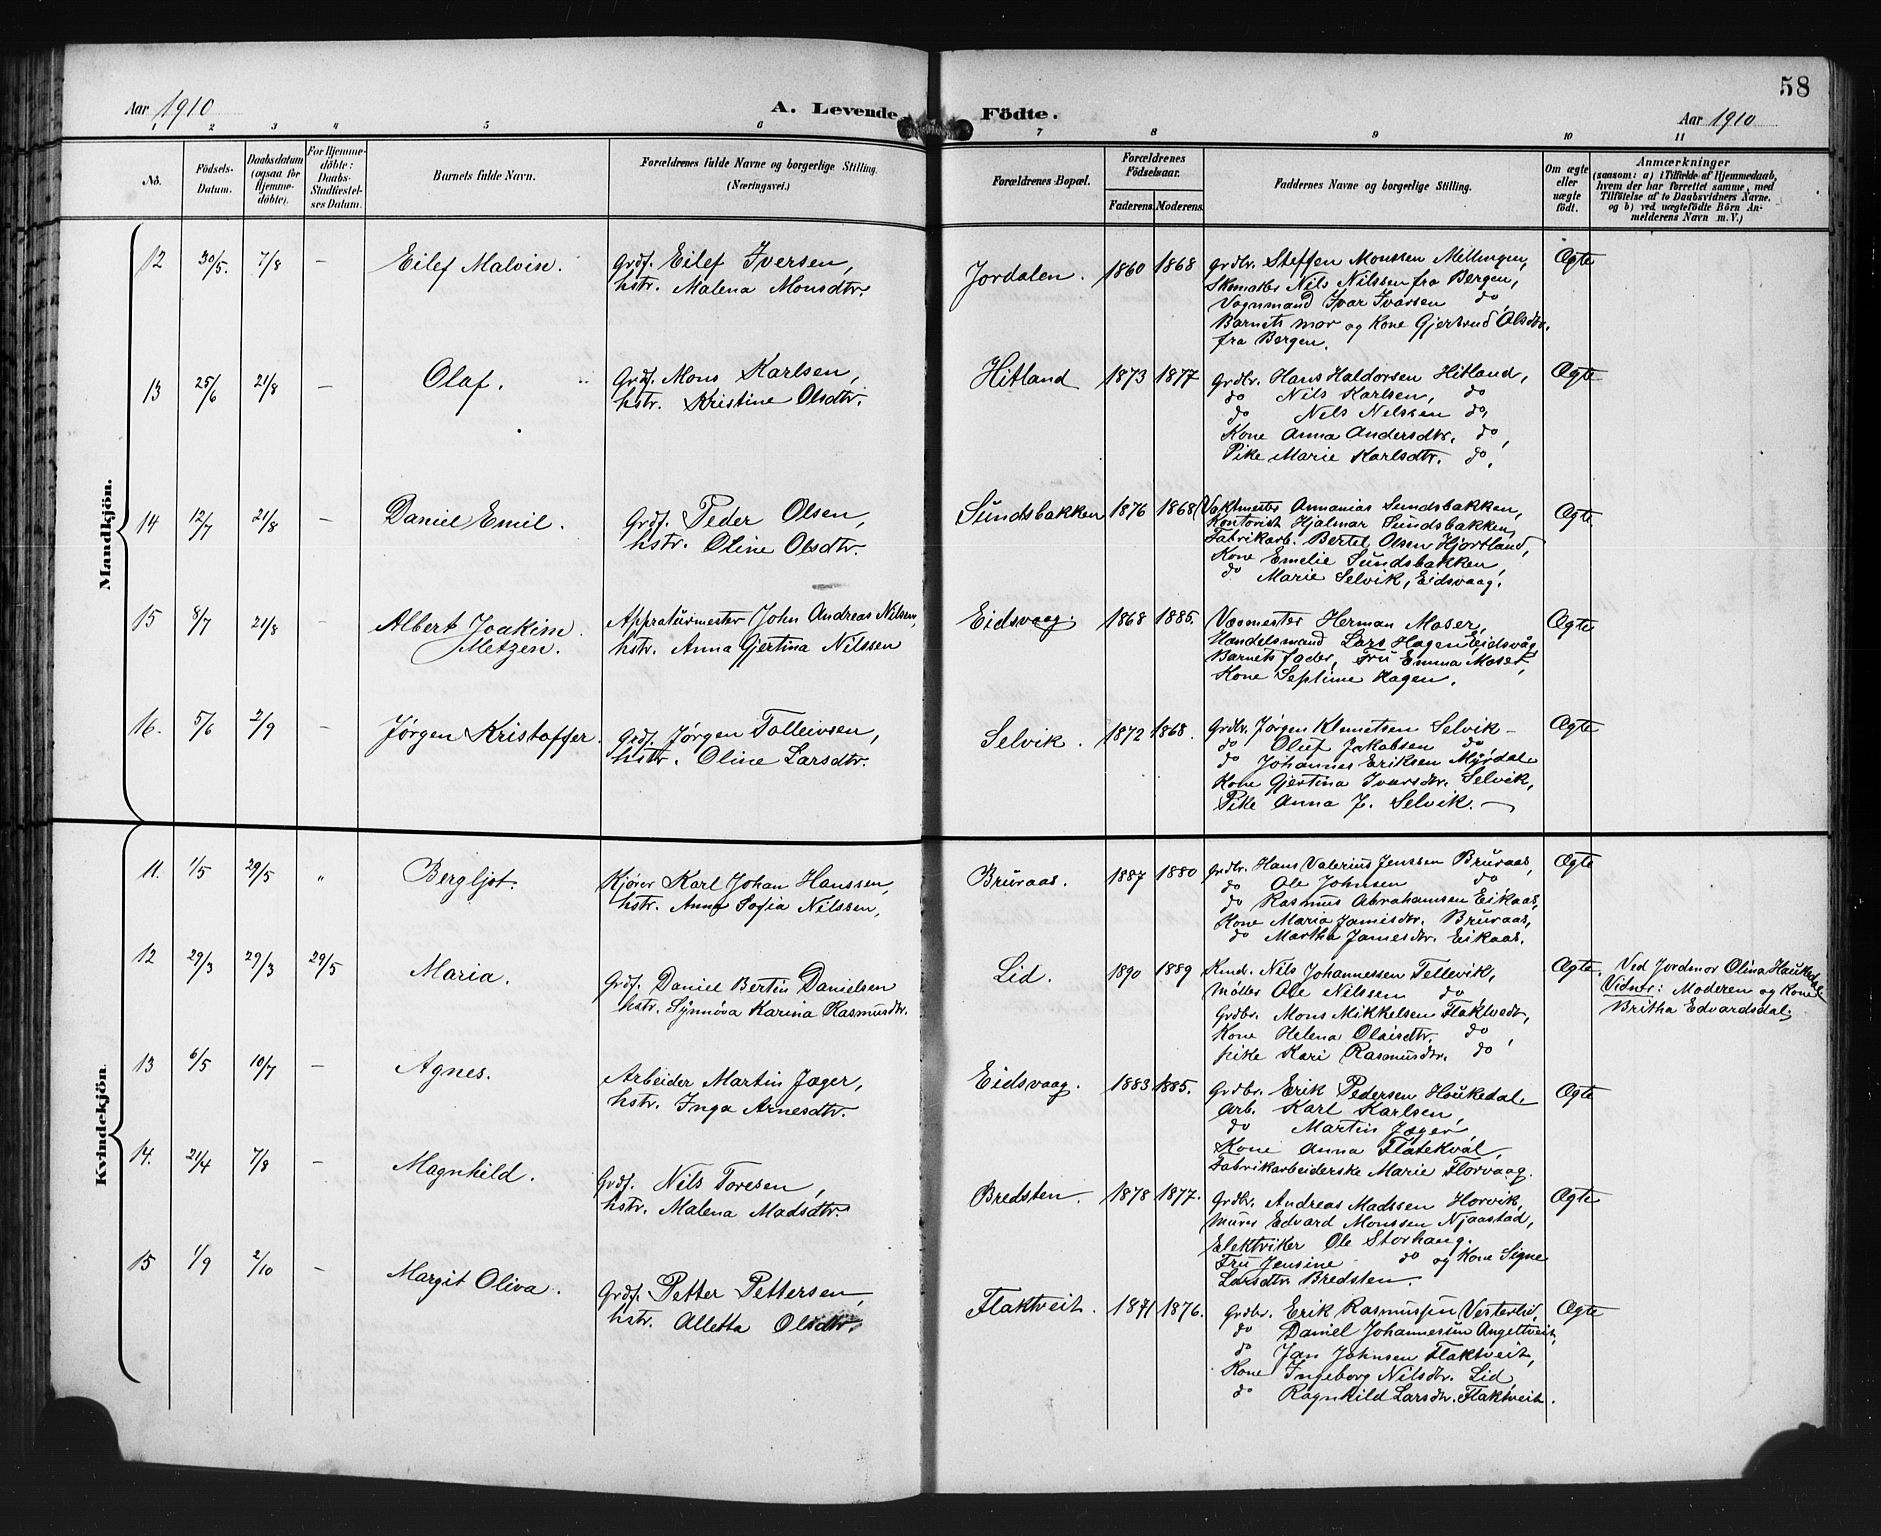 58
Aar 1910
A. Levende Födte.
Aar 1910
1 2 3 4 5 6 7 8 9 10 11
No.
Födsels-Datum.
Daabsdatum (ogsaa for Hjemme-döbte).
For Hjemme-döbte: Daabs-Stadfæstel-ses Datum.
Barnets fulde Navn.
Forældrenes fulde Navne og borgerlige Stilling. (Næringsvei.)
Forældrenes Bopæl.
Forældrenes Födselsaar.
Faderens. Moderens.
Faddernes Navne og borgerlige Stilling.
Om ægte eller uægte födt.
Anmærkninger
(saasom: a) i Tilfælde af Hjemmedaab,
hvem der har forrettet samme, med
Tilföielse af to Daabsvidners Navne,
og b) ved uægtefödte Börn An-
melderens Navn m. V.)
Mandkjön.
12 30/5. 7/8 — Eilef Malvin. Grdf. Eilef Iversen,
hstr. Malena Monsdtr.
Jordalen. 1860 1868 Grdbr. Steffen Monssen Mellingen, Ægte
Skomaker Nils Nilssen fra Bergen,
Vognmand Ivar Ivarsen do,
Barnets mor og Kone Gjertrud Olsdtr.
fra Bergen.
13 25/6 21/8 — Olaf. Grdf. Mons Karlsen,
hstr. Kristine Olsdtr.
Hitland 1873 1877 Grdbr. Hans Haldorsen Hitland, Ægte
do Nils Karlsen, do
do Nils Nilssen do,
Kone Anna Andersdtr. do,
Pike Marie Karlsdtr. do.
14 12/7 21/8 — Daniel Emil. Grdf. Peder Olsen,
hstr. Oline Olsdtr.
Sundsbakken 1876 1868 Vaktmester Annanias Sundsbakken, Ægte
Kontorist Hjalmar Sundsbakken,
Fabrikarb. Bertel Olsen Hjortland,
Kone Emelie Sundsbakken,
do Marie Selvik, Eidsvaag.
15 8/7 21/8 — Albert Joakim
Metzen.
Appraturmester John Andreas Nilsen,
hstr. Anna Gjertina Nilssen
Eidsvaag. 1868 1885. Vævmester Herman Moser, Ægte
Handelsmand Lars Hagen Eidsvåg
Barnets fader, Fru Emma Moser,
Kone Septime Hagen.
16. 5/6 2/9 — Jørgen Kristoffer. Grdf. Jørgen Tolleivsen,
hstr. Oline Larsdtr.
Selvik. 1872 1868. Grdbr. Jørgen Klemetsen Selvik — Ægte
do Oluf Jakobsen do
do Johannes Eriksen Myrdale
Kone Gjertina Ivarsdtr. Selvik,
Pike Anna J. Selvik. —
Kvindekjön.
11. 1/5 29/5 " Bergljot. Kjører Karl Johan Hanssen,
hstr. Anna Sofia Nilssen,
Bruraas. 1887 1880 Grdbr. Hans Valerius Jenssen Bruraas, Ægte
do Ole Johnsen do
do Rasmus Abrahamsen Eikaas,
Kone Maria Jamisdtr. Bruraas,
do Martha Jamesdtr. Eikaas.
12 29/3 29/3 29/5 Maria. Grdf. Daniel Bertin Danielsen
hstr. Synnøva Karina Rasmusdtr.
Lid. 1890 1889 Nils Johannessen Tellevik, Ægte.
Møller Ole Nilssen do,
Grdbr. Mons Mikkelsen Flaktvedt,
Kone Helena Olaisdtr. do,
pike Kari Rasmusdtr. do
Ved Jordmor Olina Haukedal
Vidner: Moderen og Kone
Britha Edvardsdal.
13 6/5 10/7 — Agnes. Arbeider Martin Jæger,
hstr. Inga Arnesdtr.
Eidsvaag. 1883 1885. Grdbr. Erik Pedersen Houkedale Ægte
Arb. Karl Karlsen,
do Martin Jæger,
Kone Anna Flatekvål,
Fabrikarbeiderske Marie Florvaag.
14. 21/4 7/8 — Magnhild. Grdf. Nils Toresen,
hstr. Malena Madsdtr.
Bredsten 1878 1877. Grdbr. Andreas Madssen Horvik, Ægte
Murer Edvard Monssen Njaastad,
Elektriker Ole Storhaug.
Fru Jensine do og Kone Signe
Larsdtr Bredsten
15 1/9 2/10 — Margit Oliva. Grdf. Petter Pettersen,
hstr. Alletta Olsdtr.
Flaktveit. 1871 1876. Grdbr. Erik Rasmussen Vesterlid, Ægte
do Daniel Johannessen Angeltveit,
do Jan Johnsen Flaktveit,
Kone Ingeborg Nilsdtr. Lid
do Ragnhild Larsdtr. Flaktveit.